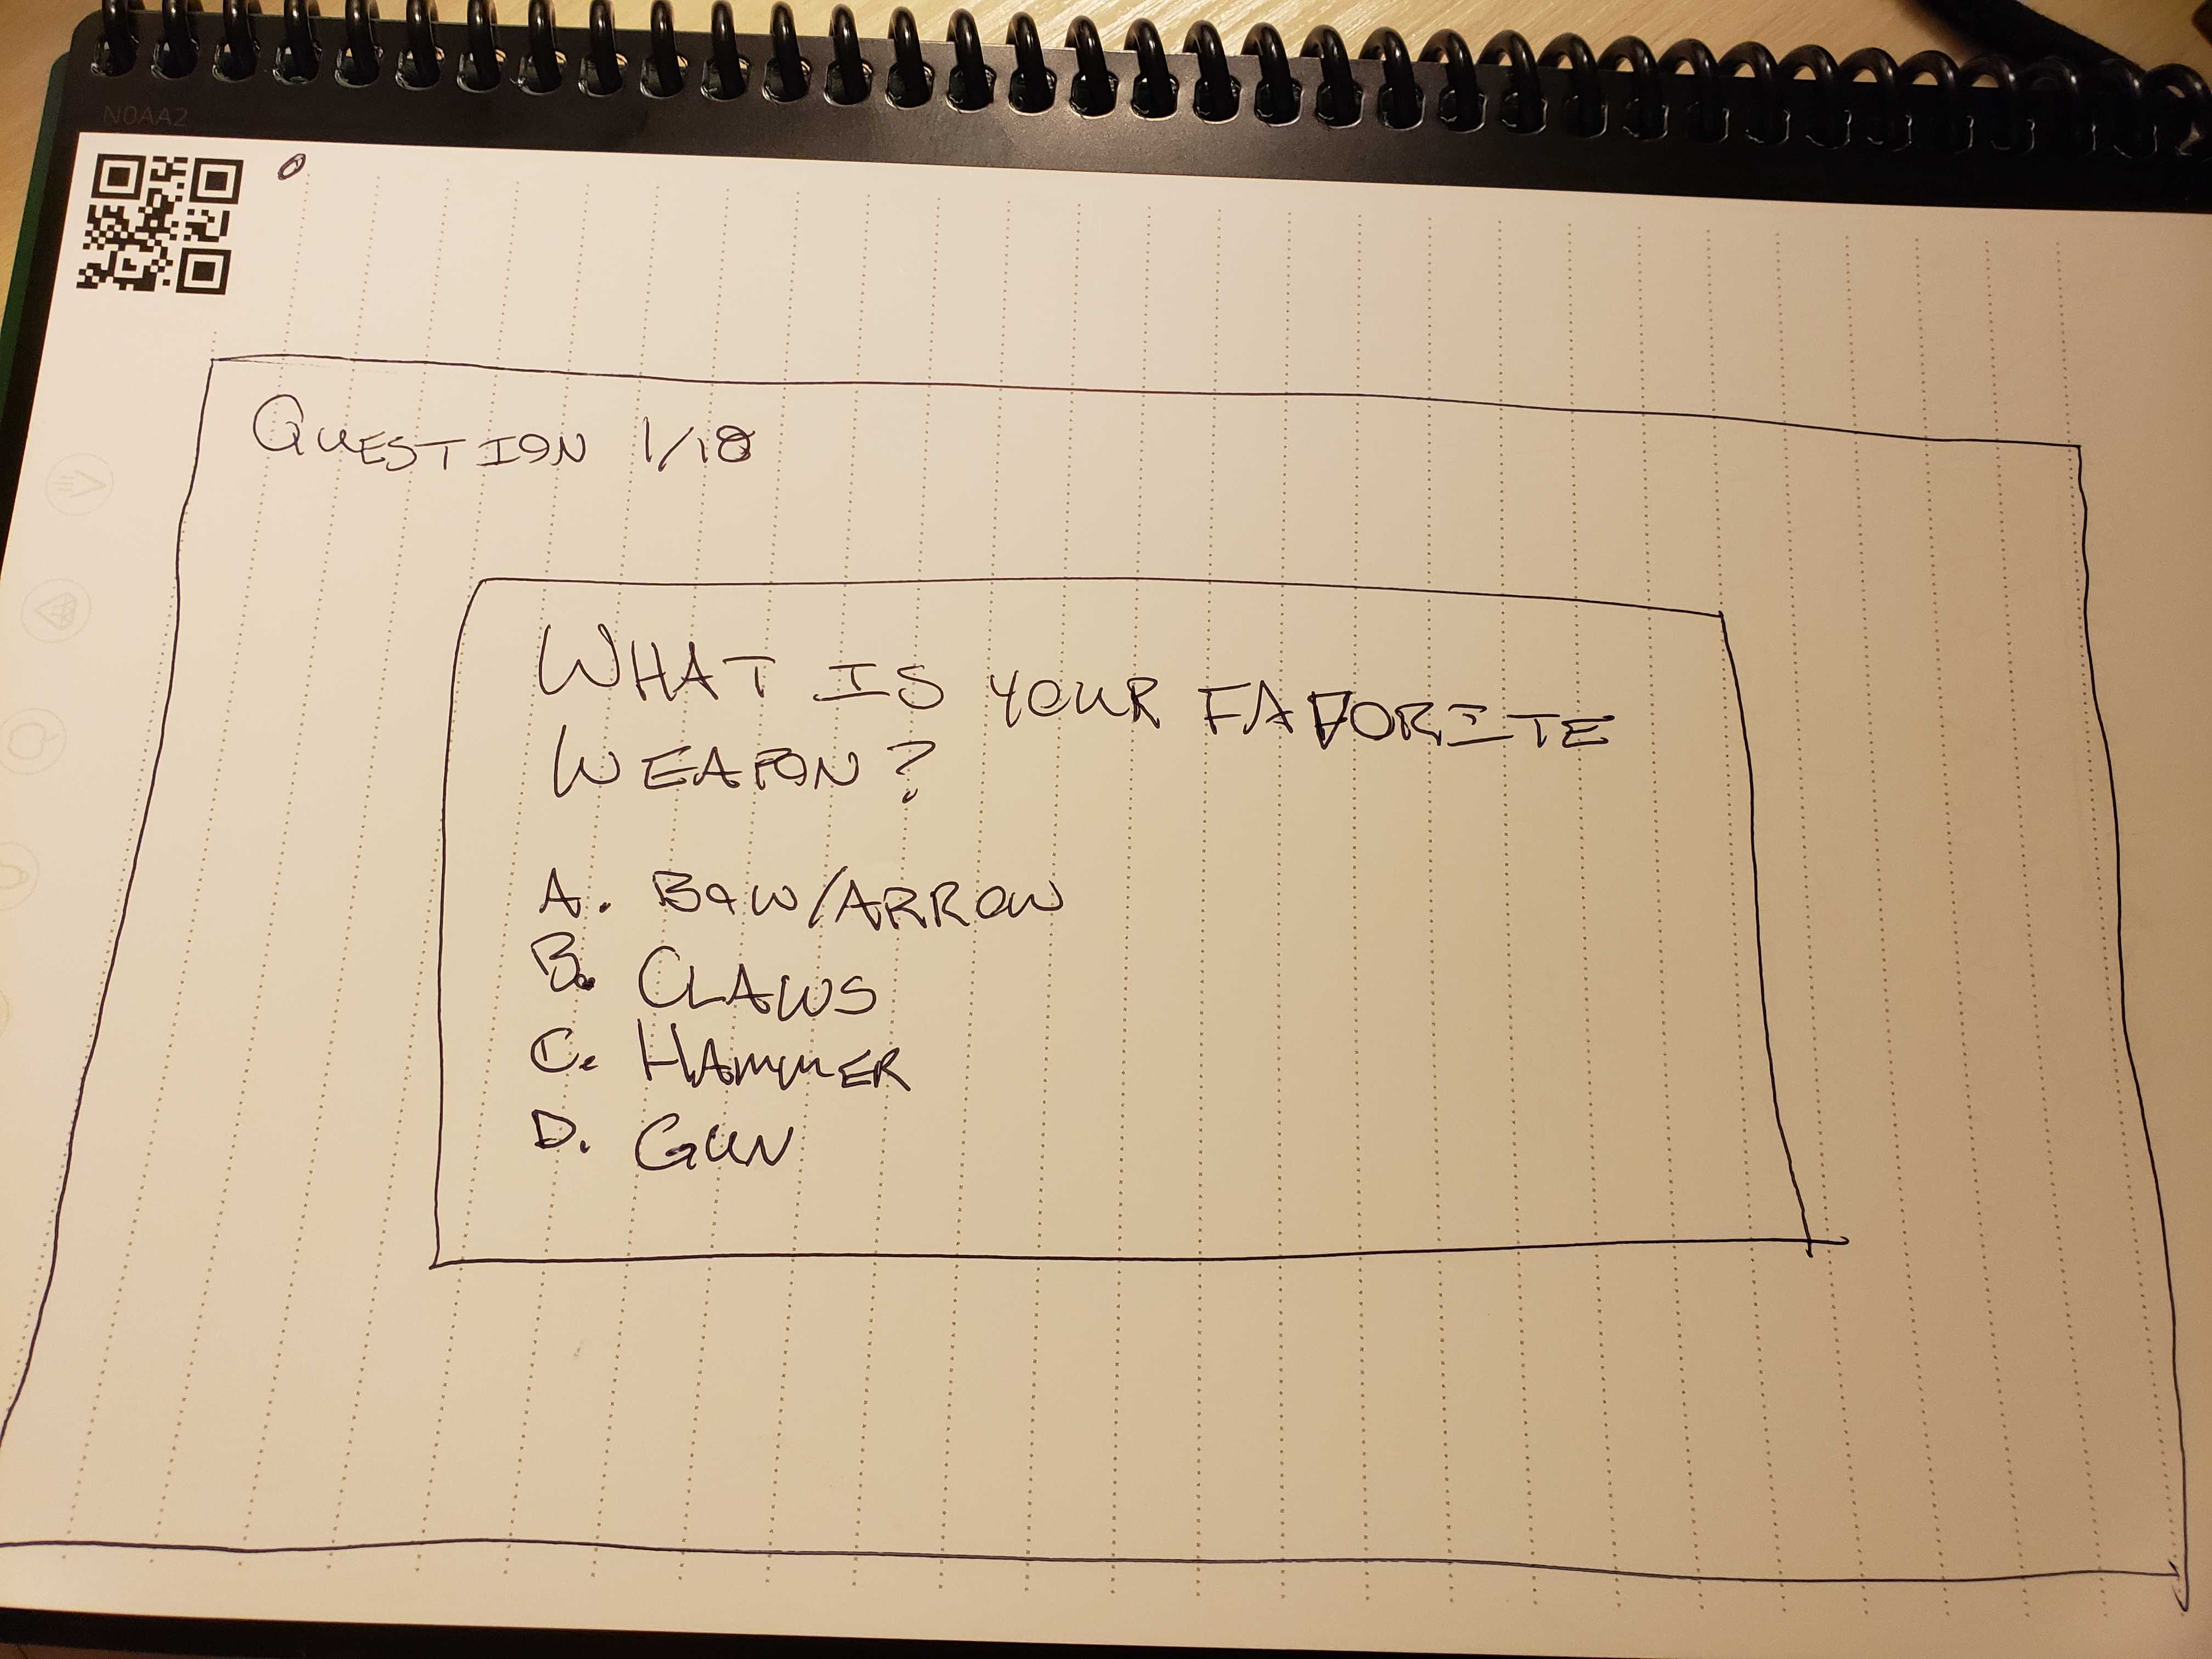 N0AA2
QUESTION 1/10
WHAT IS YOUR FAVORITE
WEAPON?
A. BOW/ARROW
B. CLAWS
C. HAMMER
D. GUN